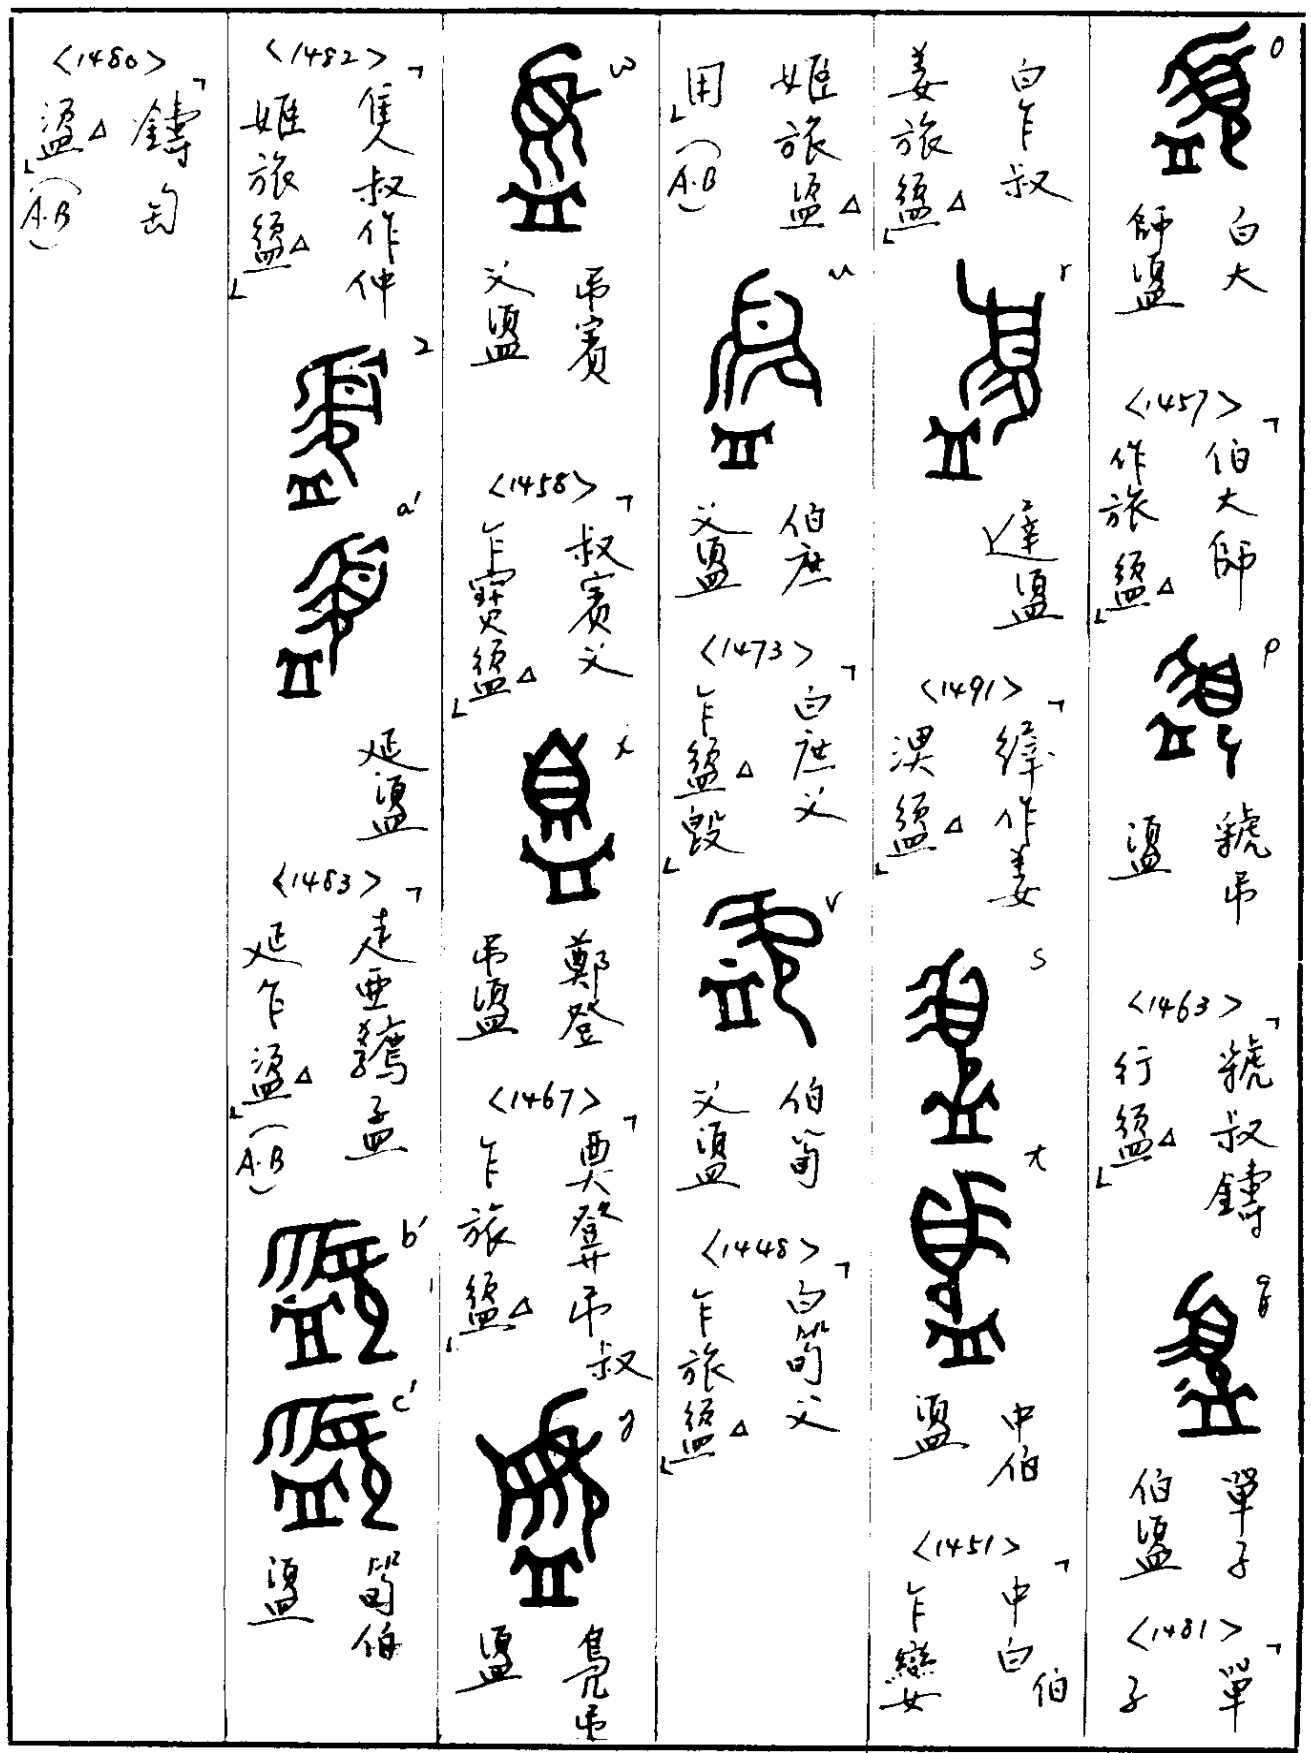 o
白大
師盨
<1457>
「伯大師
作旅盨△」
p
虢弔
盨
<1463>
「虢叔鑄
行盨△」
q
單子
伯盨
<1481>
「單
子
白乍叔
姜旅盨△」
r
達盨
<1491>
「作姜
淠盨△」
s
t
中伯
盨
<1451>
「中白伯
乍孌
姬旅盨△
用」(A.B)
u
伯庶
父盨
<1473>
「白庶父
乍盨△毁」
v
伯筍
父盨
<1448>
「白筍父
乍旅盨△」
w
弔賓
父盨
<1458>
「叔賓父
乍寶盨△」
x
鄭登
弔盨
<1467>
「奠登弔叔
乍旅盨△」
y
弔
盨
<1482>
「隻叔作仲
姬旅盨△」
z
a'
延盨
<1483>
「走亞孟
延乍盨△」(A.B)
b'
c'
筍伯
盨
<1480>
「鑄匋
盨△」(A.B)